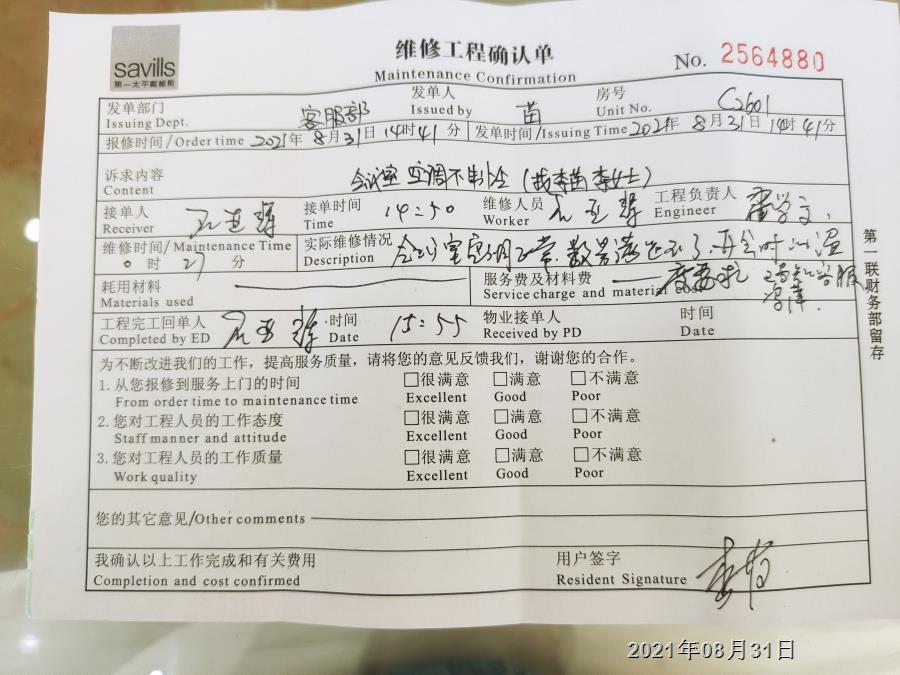 savills
第一太平戴维斯
维修工程确认单
Maintenance Confirmation
No. 2564880
发单部门 客服部 发单人 苗 房号 C2601
Issuing Dept. Issued by Unit No.
报修时间/Order time 2021年8月31日14时41分 发单时间/Issuing Time 2021年8月31日14时41分
诉求内容 会议室空调不 (找李苗李女士)
Content
接单人 接单时间 14:50 维修人员 工程负责人
Receiver Time Worker Engineer
维修时间/Maintenance Time 实际维修情况
0时27分 Description
耗用材料 服务费及材料费
Materials used Service charge and material cost
工程完工回单人 时间 15:55 物业接单人 时间
Completed by ED Date Received by PD Date
为不断改进我们的工作，提高服务质量，请将您的意见反馈我们，谢谢您的合作。
1. 从您报修到服务上门的时间 □很满意 □满意 □不满意
From order time to maintenance time Excellent Good Poor
2. 您对工程人员的工作态度 □很满意 □满意 □不满意
Staff manner and attitude Excellent Good Poor
3. 您对工程人员的工作质量 □很满意 □满意 □不满意
Work quality Excellent Good Poor
您的其它意见/Other comments
我确认以上工作完成和有关费用 用户签字
Completion and cost confirmed Resident Signature
第一联财务部留存
2021年08月31日